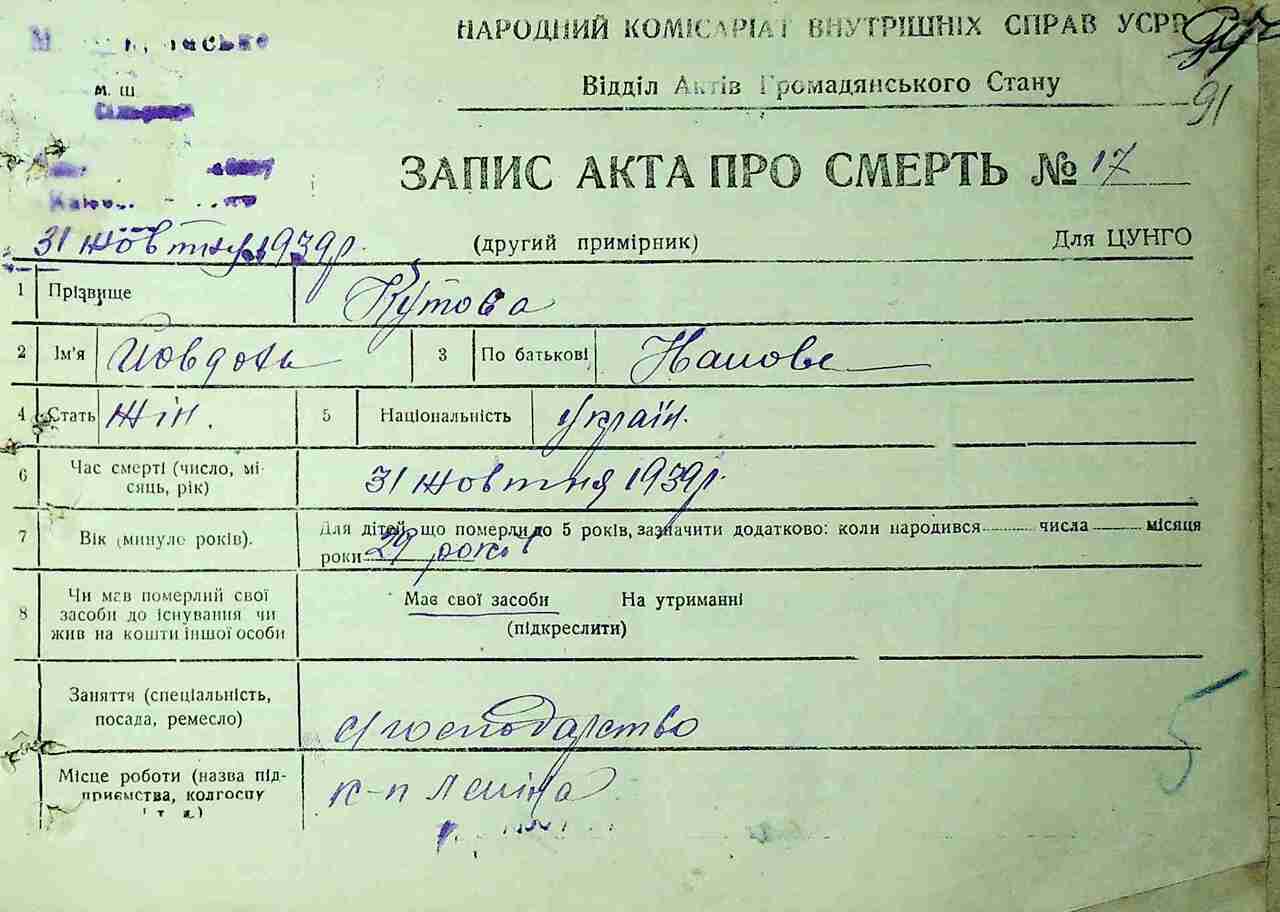 НАРОДНИЙ КОМІСАРІАТ ВНУТРІШНІХ СПРАВ УСРР
Відділ Актів Громадянського Стану
91
м. Ш
ЗАПИС АКТА ПРО СМЕРТЬ № 17
31 жовтня 1939р. (другий примірник) Для ЦУНГО
1 Прізвище Кутова
2 Ім'я Йовдоха 3 По батькові
4 Стать жін. 5 Національність україн.
6 Час смерті (число, мі-
сяць, рік) 31 жовтня 1939р.
7 Вік (минуло років). Для дітей, що померли до 5 років, зазначити додатково: коли народився числа місяця
роки 29 років
8 Чи мав померлий свої
засоби до існування чи
жив на кошти іншої особи
Має свої засоби На утриманні
(підкреслити)
Заняття (спеціальність,
посада, ремесло) с/господарство
Місце роботи (назва під-
приємства, колгоспу
і т. д.)
к-п Леніна
5